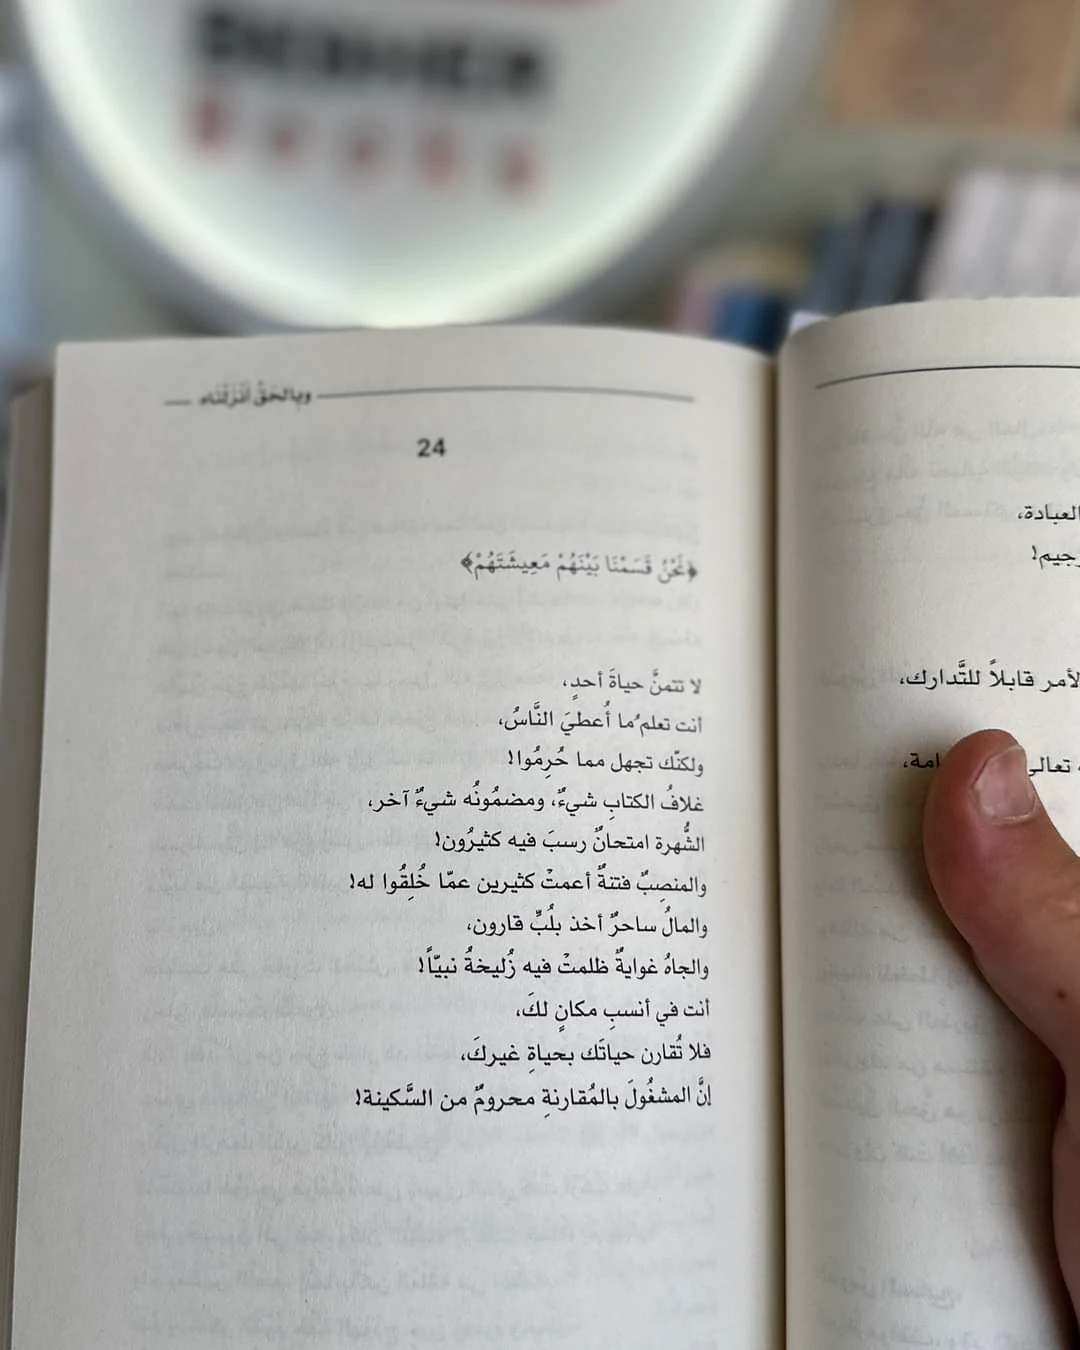 وبالحَقِّ أَنْزَلْنَاه
24
﴿نَحْنُ قَسَمْنَا بَيْنَهُمْ مَعِيشَتَهُمْ﴾
لا تتمنَّ حياةَ أحدٍ،
أنت تعلمُ ما أُعطيَ النَّاسُ،
ولكنّك تجهل مما حُرِمُوا!
غلافُ الكتابِ شيءٌ، ومضمُونُه شيءٌ آخر،
الشُّهرة امتحانٌ رسبَ فيه كثيرُون!
والمنصِبُ فتنةٌ أعمتْ كثيرين عمّا خُلِقُوا له!
والمالُ ساحرٌ أخذ بلُبِّ قارون،
والجاهُ غوايةٌ ظلمتْ فيه زُليخةُ نبيّاً!
أنت في أنسبِ مكانٍ لكَ،
فلا تُقارن حياتَك بحياةِ غيركَ،
إنَّ المشغُولَ بالمُقارنةِ محرومٌ من السَّكينة!
العبادة،
لأمر قابلاً للتَّدارك،
تعالى